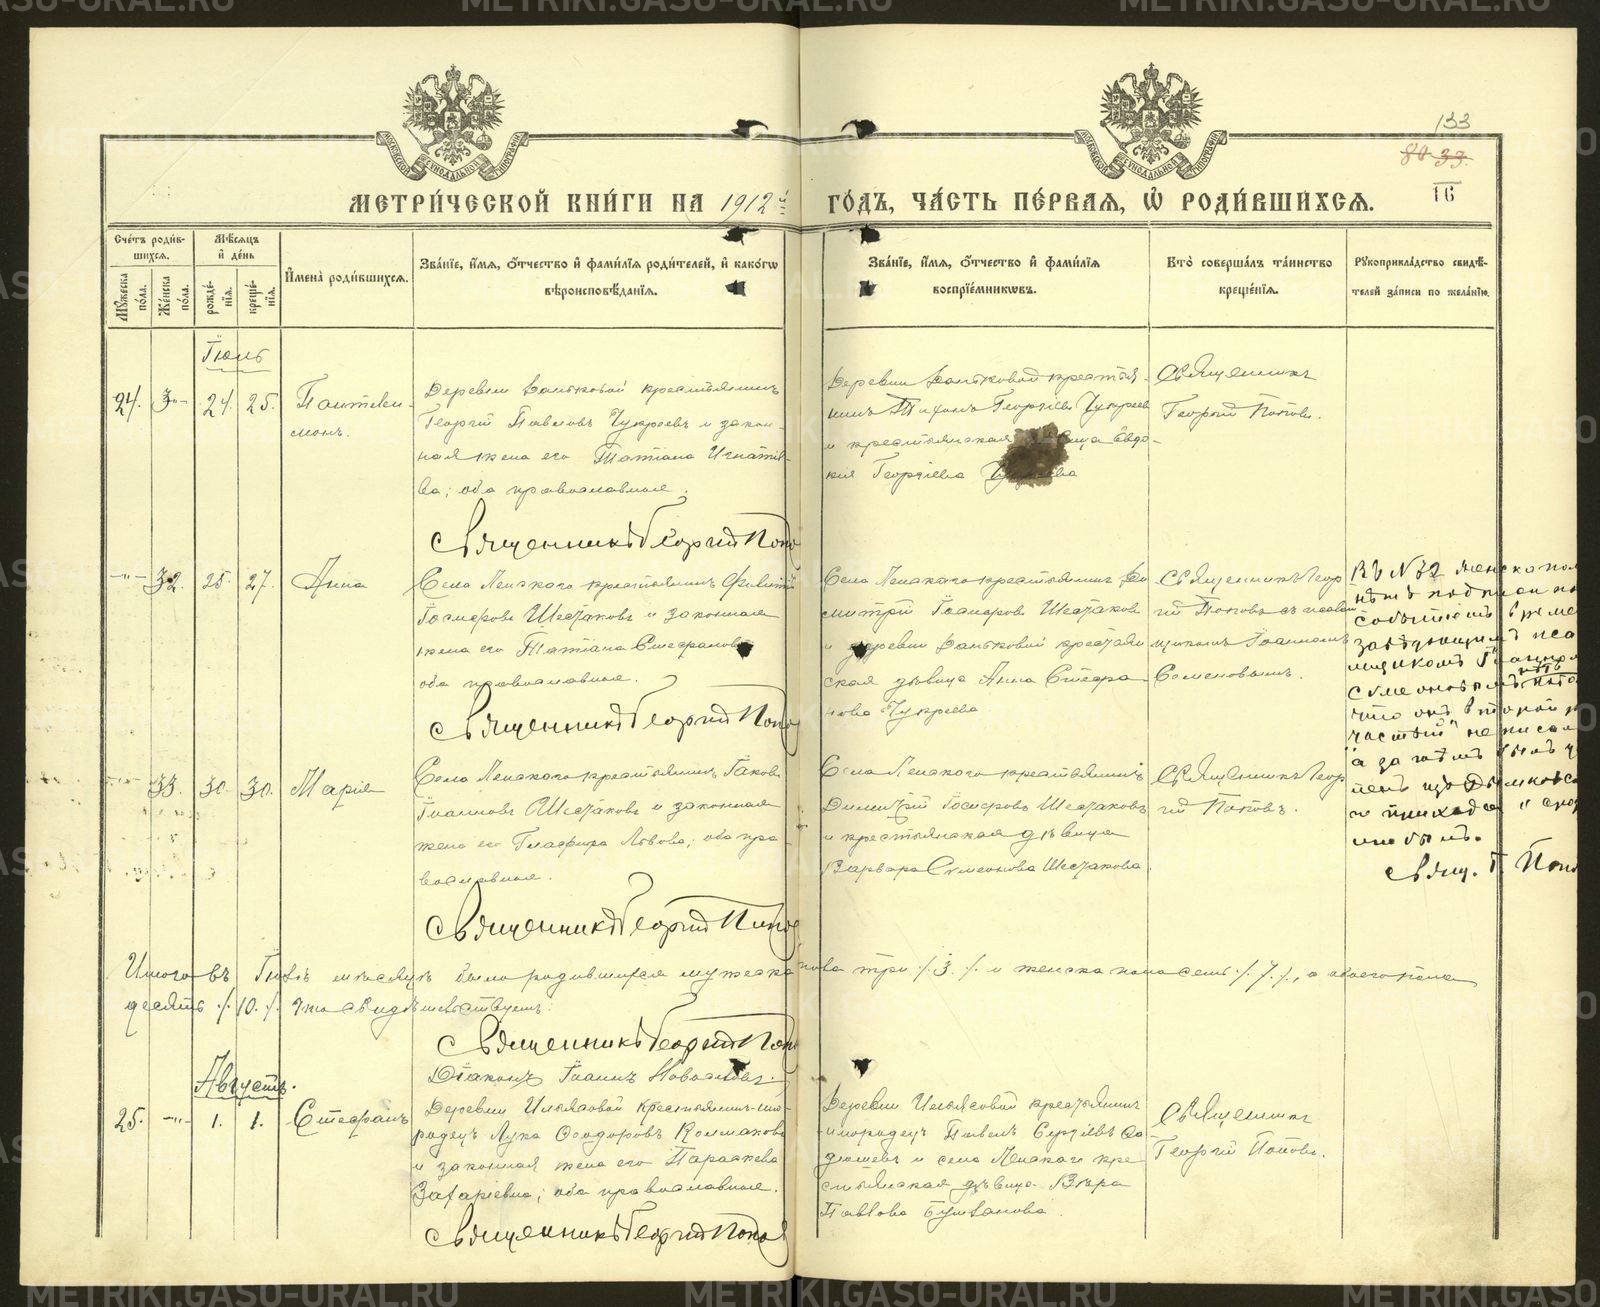 METRIKI.GASO-URAL.RU
133
80 33.
16
МОСКОВСКОЙ СѴНОДАЛЬНОЙ ТИПОГРАФІИ
МЕТРИ́ЧЕСКОЙ КНИ́ГИ НА 1912 й ГО́ДЪ, ЧА́СТЬ ПЕ́РВАЯ, Ѡ҆ РОДИ́ВШИХСЯ.
Сче́тъ роди́вшихся.
Мꙋ́жеска по́ла.
Же́нска по́ла.
Мѣ́сяцъ и҆ де́нь
рожде́нїя.
креще́нїя.
И҆мена̀ роди́вшихся.
Зва́нїе, и҆́мя, ѻ҆́тчество и҆ фами́лїя роди́телей, и҆ како́гѡ вѣроисповѣ́данїя.
Зва́нїе, и҆́мя, ѻ҆́тчество и҆ фами́лїя воспрїе́мникѡвъ.
Кто̀ соверша́лъ та́инство креще́нїя.
Рꙋкоприкла́дство свидѣ́телей за́писи по жела́нїю.
Іюль
24. 24. 25. Пантелеи-
монъ.
Деревни Ваньковой крестьянинъ
Георгій Павловъ Чукреевъ и закон-
ная жена его Татіана Игнатіе-
ва; оба православные.
Священникъ Георгій Попо
Деревни Ваньковой крестья-
нинъ Тихонъ Георгіевъ Чукреев
и крестьянская Евдо-
кия Георгіева
Священникъ
Георгій Поповъ.
-"- 32. 25. 27. Анна
Села Ленского крестьянинъ
Іосифовъ Шестаковъ и законная
жена его Татіана Стефанова
оба православные.
Священникъ Георгій Попо
Села Ленского крестьянинъ Ди
митрій Іосифовъ Шестаковъ
и деревни Ваньковой крестьян
ская дѣвица Анна Стефа-
нова Чукреева
Священникъ Геор
гій Поповъ съ псалом
щикомъ Іоанномъ
Семеновымъ.
Въ № 32 женска пол
нѣтъ подписи
завѣдующимъ пса
щикомъ
что онъ второй
части не писал
а затѣмъ былъ
прихода
Свящ. Г. Попо
-"- 33. 30. 30. Марія
Села Ленского крестьянинъ Іаковъ
Іоанновъ Шестаковъ и законная
жена его Глафира Львова; оба пра-
вославные.
Священникъ Георгій Попов
Села Ленского крестьянинъ
Димитрій Іосифовъ Шестаковъ
и крестьянская дѣвица
Варвара Симеонова Шестакова.
Священникъ Геор
гій Поповъ.
Итого въ Іюлѣ мѣсяцѣ было родившихся мужеска пола три /.3./. и женска пола семь /.7./., а обоего пола
десять /.10./. Что свидѣтельствуемъ:
Священникъ Георгій Попо
Діаконъ Іоаннъ
Августъ.
25. -"- 1. 1. Стефанъ
Деревни Ильясовой крестьянинъ-ино-
родецъ Лука Ѳеодоровъ Колмаковъ
и законная жена его Параскева
Захаріевна; оба православные.
Священникъ Георгій Попов
Деревни Ильясовой крестьянинъ
-инородецъ Павелъ Сергіевъ
и села Ленского кре-
стьянская дѣвица Вѣра
Павлова
Священникъ
Георгій Поповъ.